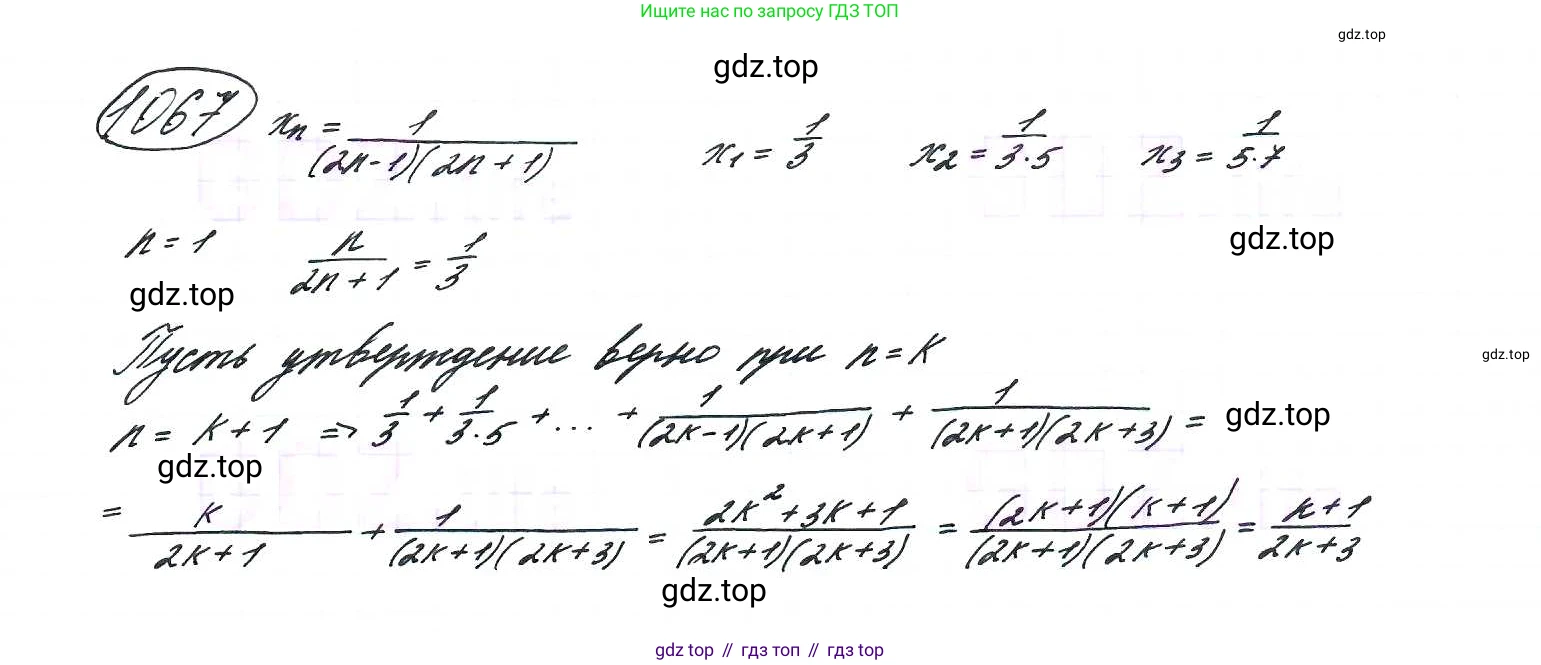 Ищите нас по запросу ГДЗ ТОП
gdz.top
gdz.top
1067 xₙ = 1/((2n-1)(2n+1)) x₁ = 1/3 x₂ = 1/(3·5) x₃ = 1/(5·7)
gdz.top
n = 1 n/(2n+1) = 1/3
gdz.top
Пусть утверждение верно при n = k
gdz.top
n = k+1 ⇒ 1/3 + 1/(3·5) + ... + 1/((2k-1)(2k+1)) + 1/((2k+1)(2k+3)) =
gdz.top
gdz.top
= k/(2k+1) + 1/((2k+1)(2k+3)) = (2k²+3k+1)/((2k+1)(2k+3)) = ((2k+1)(k+1))/((2k+1)(2k+3)) = (k+1)/(2k+3)
gdz.top
gdz top // гдз топ // gdz top